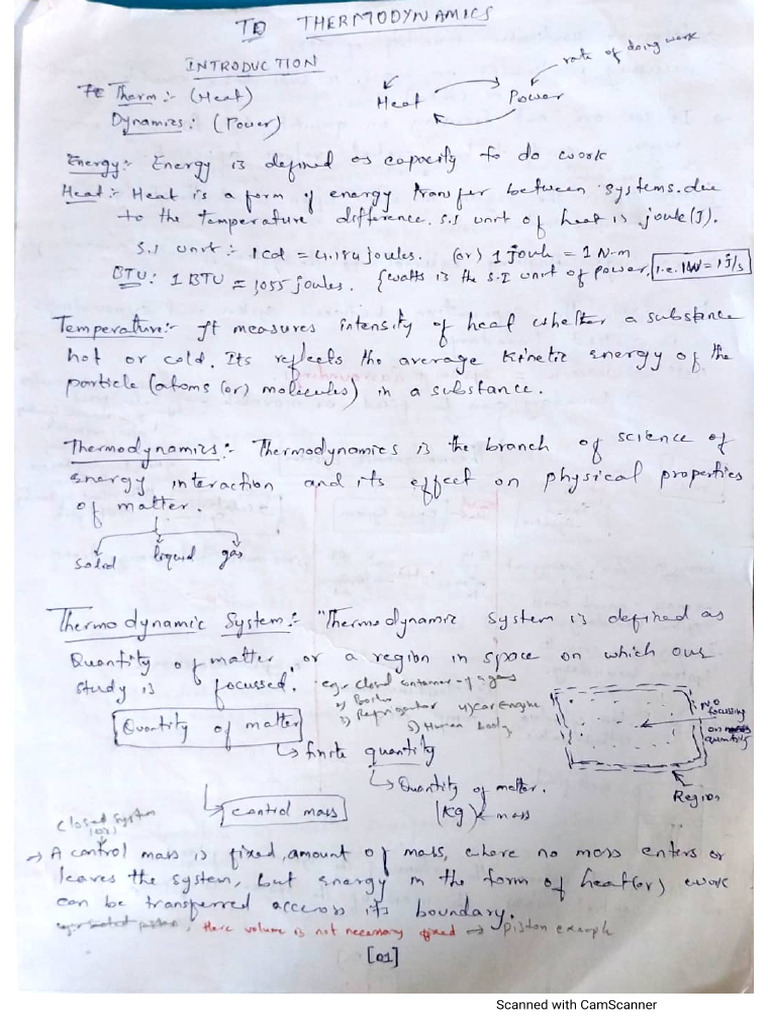 TD THERMODYNAMICS
INTRODUCTION
rate of doing work
Therm :- (Heat)
Heat Power
Dynamics : (Power)
Energy :- Energy is defined as capacity to do work
Heat :- Heat is a form of energy transfer between systems due
to the temperature difference. S.I unit of heat is joule (J).
S.I unit :- 1 cal = 4.184 joules. (or) 1 joule = 1 N-m
BTU : 1 BTU = 1055 joules. {watts is the S.I unit of power. i.e. 1W = 1 J/s
Temperature :- It measures intensity of heat whether a substance
hot or cold. Its reflects the average kinetic energy of the
particle (atoms (or) molecules) in a substance.
Thermodynamics :- Thermodynamics is the branch of science of
energy interaction and its effect on physical properties
of matter.
solid liquid gas
Thermodynamic System :- "Thermodynamic system is defined as
Quantity of matter or a region in space on which our
study is focussed." eg:- closed container of gas
2) Boiler
3) Refrigerator 4) Car engine
5) Human body
Quantity of matter
↳ finite quantity
↳ Quantity of matter.
(Kg) ← mass
No
focussing
on
quantity
Region
control mass
closed system
(or)
→ A control mass is fixed, amount of mass, where no mass enters or
leaves the system, but energy in the form of heat (or) work
can be transferred accross its boundary.
piston, Here volume is not necessary fixed → piston example
[01]
Scanned with CamScanner